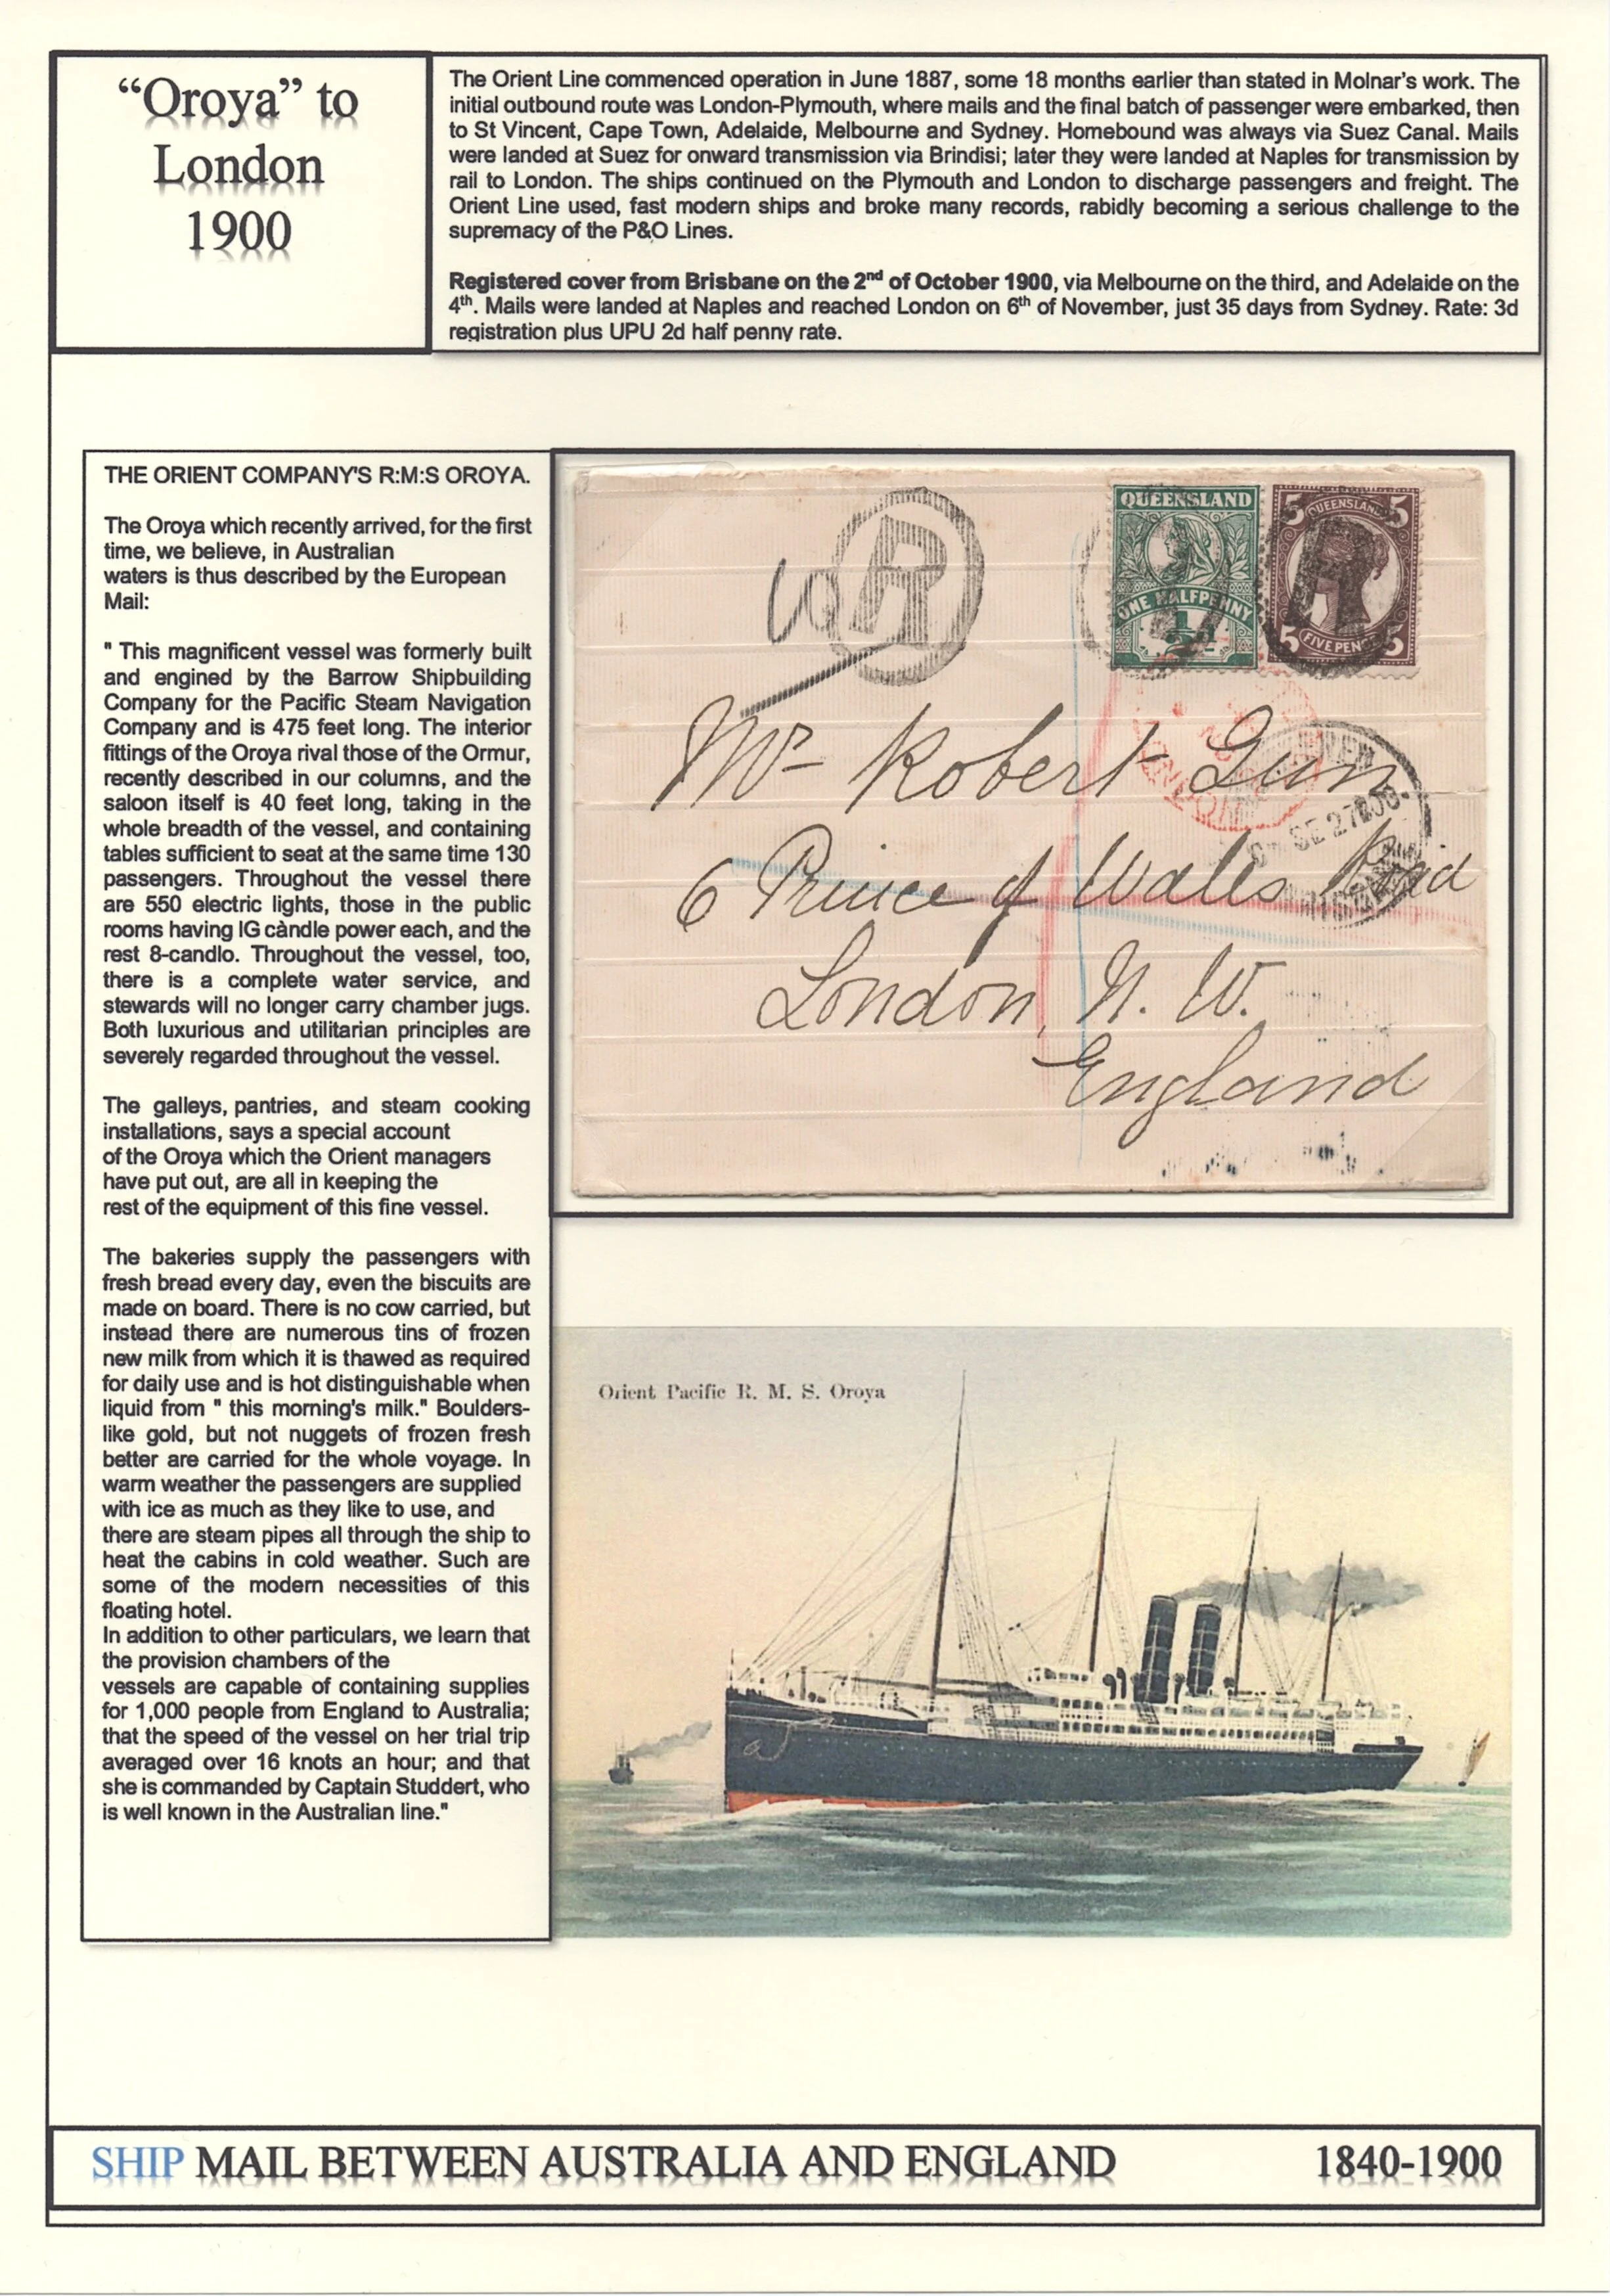 “Oroya” to
London
1900
The Orient Line commenced operation in June 1887, some 18 months earlier than stated in Molnar’s work. The
initial outbound route was London-Plymouth, where mails and the final batch of passenger were embarked, then
to St Vincent, Cape Town, Adelaide, Melbourne and Sydney. Homebound was always via Suez Canal. Mails
were landed at Suez for onward transmission via Brindisi; later they were landed at Naples for transmission by
rail to London. The ships continued on the Plymouth and London to discharge passengers and freight. The
Orient Line used, fast modern ships and broke many records, rabidly becoming a serious challenge to the
supremacy of the P&O Lines.
Registered cover from Brisbane on the 2nd of October 1900, via Melbourne on the third, and Adelaide on the
4th. Mails were landed at Naples and reached London on 6th of November, just 35 days from Sydney. Rate: 3d
registration plus UPU 2d half penny rate.
THE ORIENT COMPANY'S R:M:S OROYA.
The Oroya which recently arrived, for the first
time, we believe, in Australian
waters is thus described by the European
Mail:
" This magnificent vessel was formerly built
and engined by the Barrow Shipbuilding
Company for the Pacific Steam Navigation
Company and is 475 feet long. The interior
fittings of the Oroya rival those of the Ormur,
recently described in our columns, and the
saloon itself is 40 feet long, taking in the
whole breadth of the vessel, and containing
tables sufficient to seat at the same time 130
passengers. Throughout the vessel there
are 550 electric lights, those in the public
rooms having IG càndle power each, and the
rest 8-candlo. Throughout the vessel, too,
there is a complete water service, and
stewards will no longer carry chamber jugs.
Both luxurious and utilitarian principles are
severely regarded throughout the vessel.
The galleys, pantries, and steam cooking
installations, says a special account
of the Oroya which the Orient managers
have put out, are all in keeping the
rest of the equipment of this fine vessel.
The bakeries supply the passengers with
fresh bread every day, even the biscuits are
made on board. There is no cow carried, but
instead there are numerous tins of frozen
new milk from which it is thawed as required
for daily use and is hot distinguishable when
liquid from " this morning's milk." Boulders-
like gold, but not nuggets of frozen fresh
better are carried for the whole voyage. In
warm weather the passengers are supplied
with ice as much as they like to use, and
there are steam pipes all through the ship to
heat the cabins in cold weather. Such are
some of the modern necessities of this
floating hotel.
In addition to other particulars, we learn that
the provision chambers of the
vessels are capable of containing supplies
for 1,000 people from England to Australia;
that the speed of the vessel on her trial trip
averaged over 16 knots an hour; and that
she is commanded by Captain Studdert, who
is well known in the Australian line."
R
QUEENSLAND
ONE HALFPENNY
½
5 QUEENSLAND 5
5 FIVE PENCE 5
LONDON
SE 27
Mr Robert Dunn
6 Prince of Wales Road
London, N. W.
England
Orient Pacific R. M. S. Oroya
SHIP MAIL BETWEEN AUSTRALIA AND ENGLAND
1840-1900